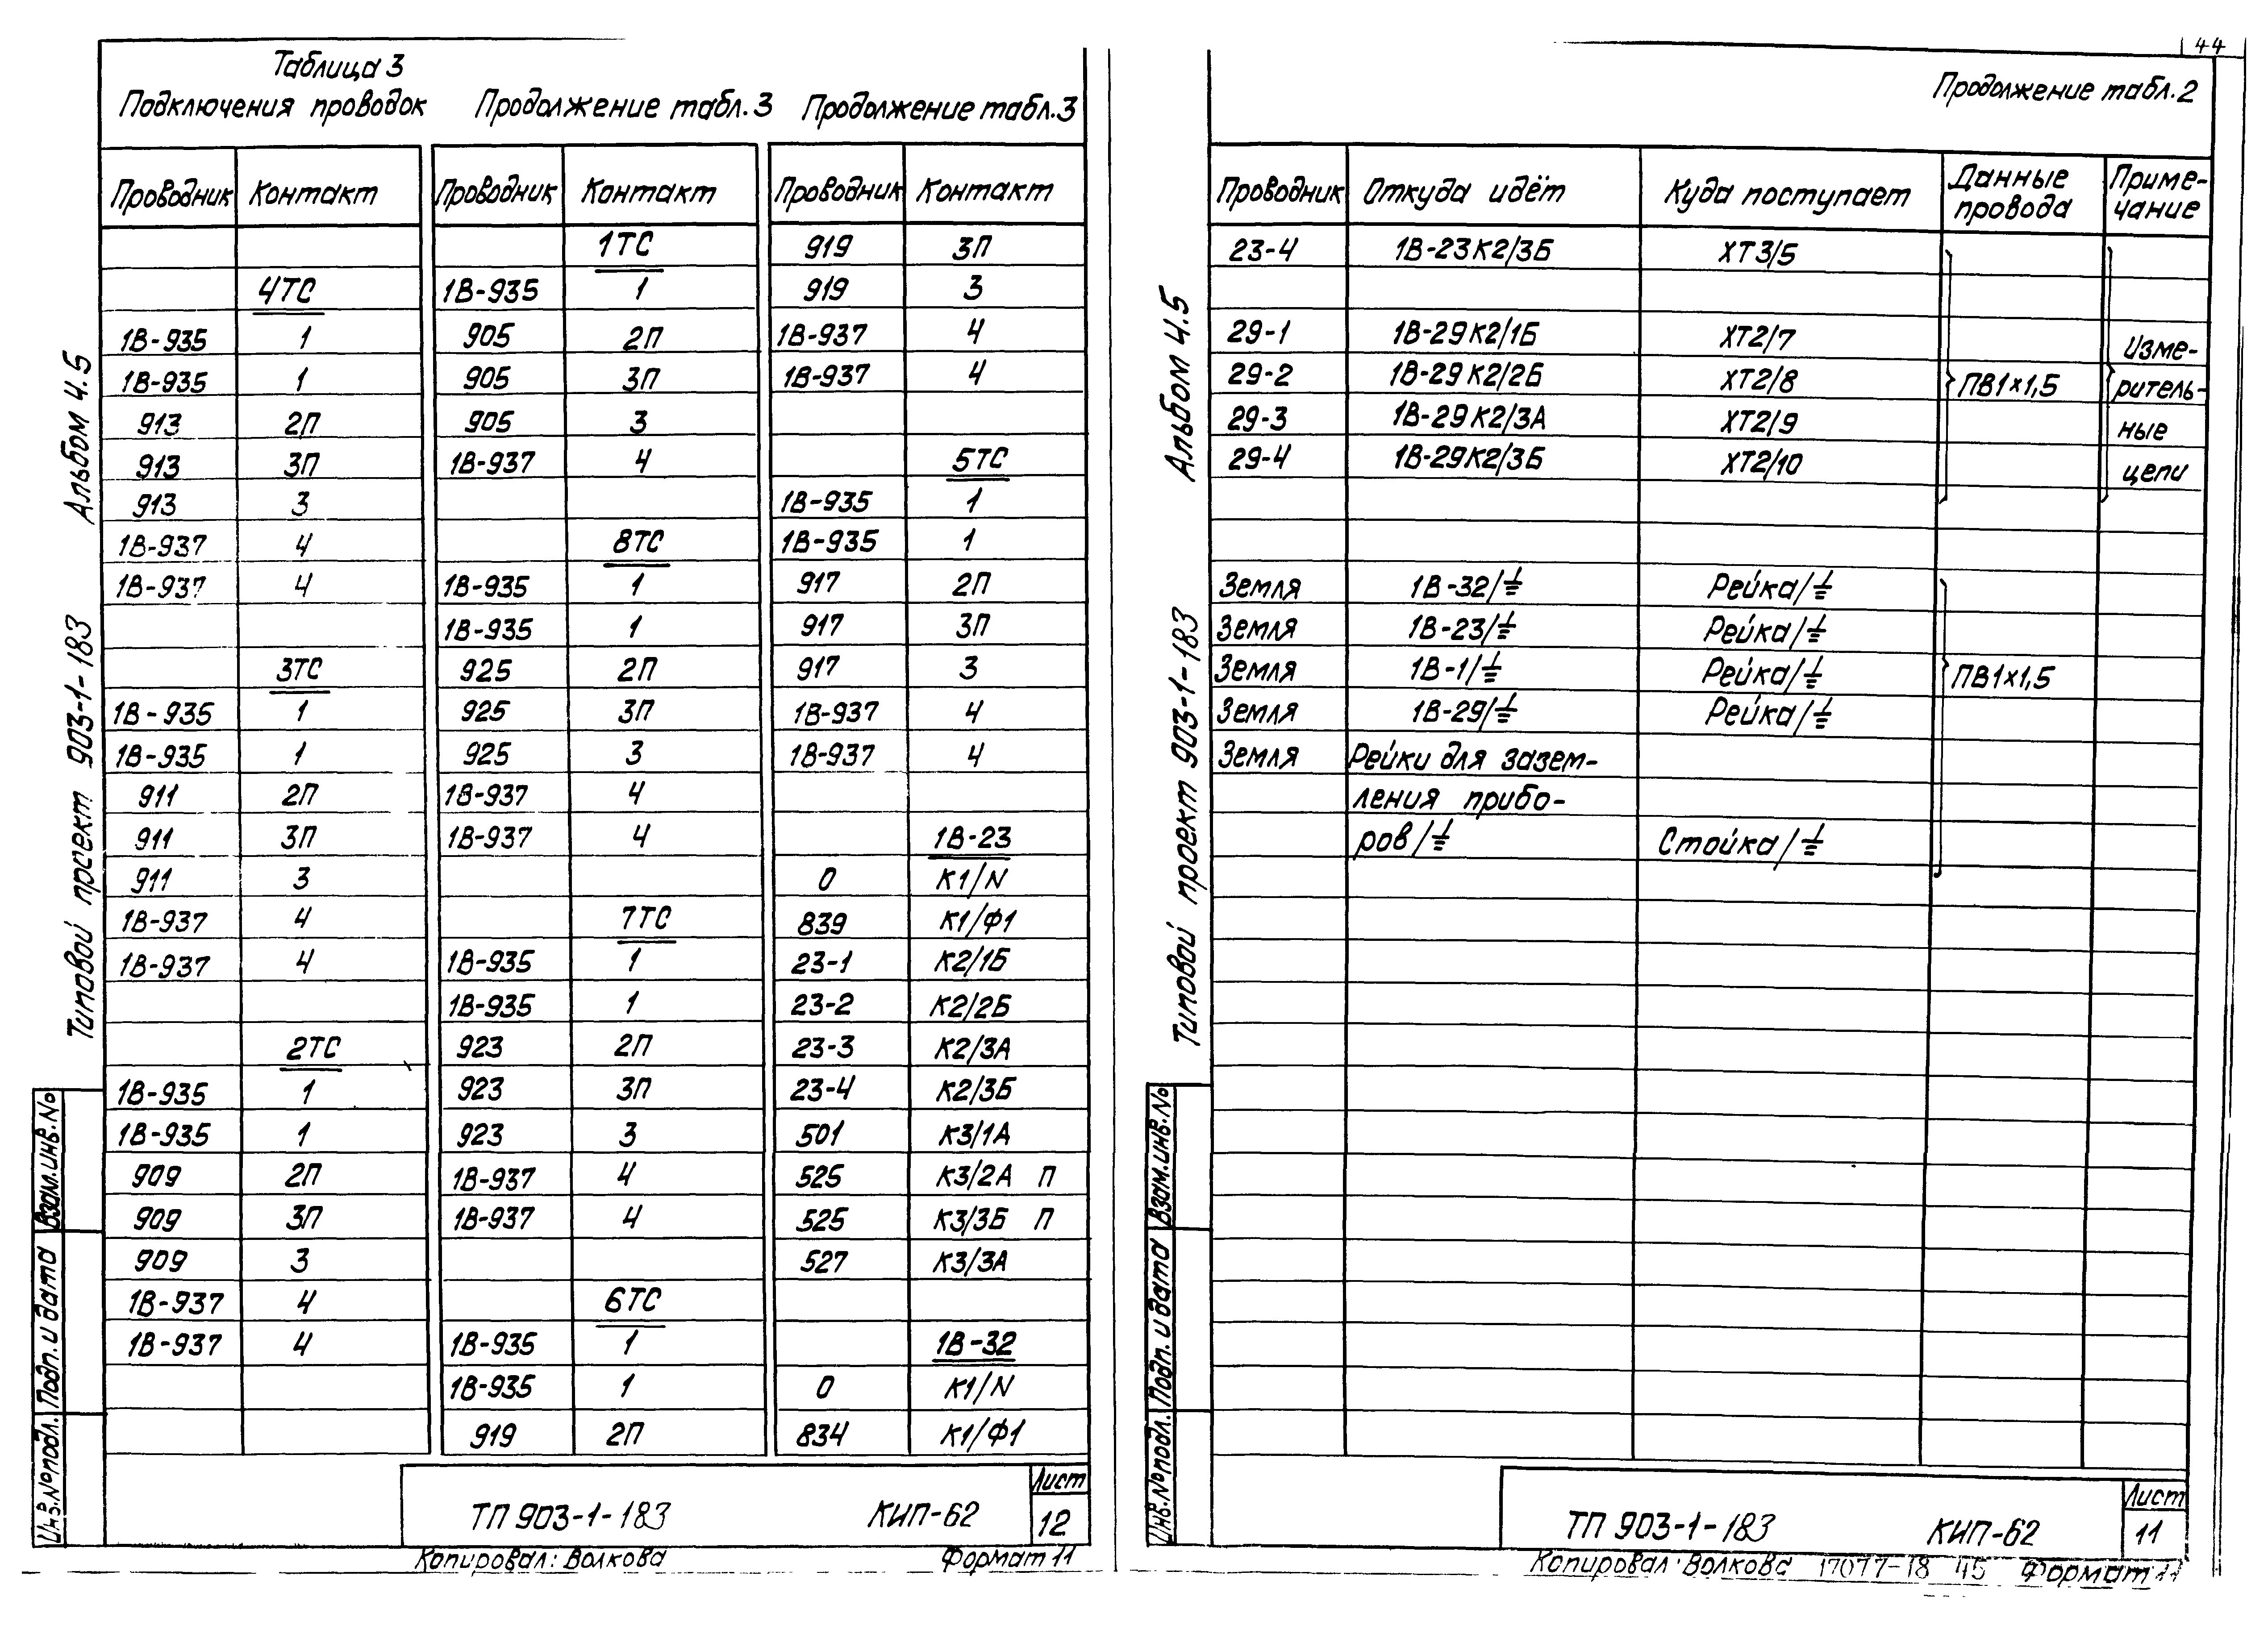 Таблица 3
Подключения проводок
Проводник Контакт
4ТС
1В-935 1
1В-935 1
913 2П
913 3П
913 3
1В-937 4
1В-937 4
3ТС
1В-935 1
1В-935 1
911 2П
911 3П
911 3
1В-937 4
1В-937 4
2ТС
1В-935 1
1В-935 1
909 2П
909 3П
909 3
1В-937 4
1В-937 4
Продолжение табл. 3
Проводник Контакт
1ТС
1В-935 1
905 2П
905 3П
905 3
1В-937 4
8ТС
1В-935 1
1В-935 1
925 2П
925 3П
925 3
1В-937 4
1В-937 4
7ТС
1В-935 1
1В-935 1
923 2П
923 3П
923 3
1В-937 4
1В-937 4
6ТС
1В-935 1
1В-935 1
919 2П
Продолжение табл.3
Проводник Контакт
919 3П
919 3
1В-937 4
1В-937 4
5ТС
1В-935 1
1В-935 1
917 2П
917 3П
917 3
1В-937 4
1В-937 4
1В-23
0 К1/N
839 К1/Ф1
23-1 К2/1Б
23-2 К2/2Б
23-3 К2/3А
23-4 К2/3Б
501 К3/1А
525 К3/2А П
525 К3/3Б П
527 К3/3А
1В-32
0 К1/N
834 К1/Ф1
Альбом 4.5
Типовой проект 903-1-183
Взам.инв.№
Подп. и дата
Инв.№подл.
ТП 903-1-183 КИП-62
Лист
12
Копировал: Волкова Формат 11
44
Продолжение табл.2
Проводник Откуда идёт Куда поступает Данные провода Примечание
23-4 1В-23К2/3Б ХТ3/5
29-1 1В-29К2/1Б ХТ2/7
29-2 1В-29К2/2Б ХТ2/8
29-3 1В-29К2/3А ХТ2/9
29-4 1В-29К2/3Б ХТ2/10
ПВ1×1,5
Изме-
ритель-
ные
цепи
Земля 1В-32/⏚ Рейка/⏚
Земля 1В-23/⏚ Рейка/⏚
Земля 1В-1/⏚ Рейка/⏚
Земля 1В-29/⏚ Рейка/⏚
ПВ1×1,5
Земля Рейки для зазем-
ления прибо-
ров/⏚ Стойка/⏚
Альбом 4.5
Типовой проект 903-1-183
Взам.инв.№
Подп. и дата
Инв.№подл.
ТП 903-1-183 КИП-62
Лист
11
Копировал: Волкова 17077-18 45 Формат 11